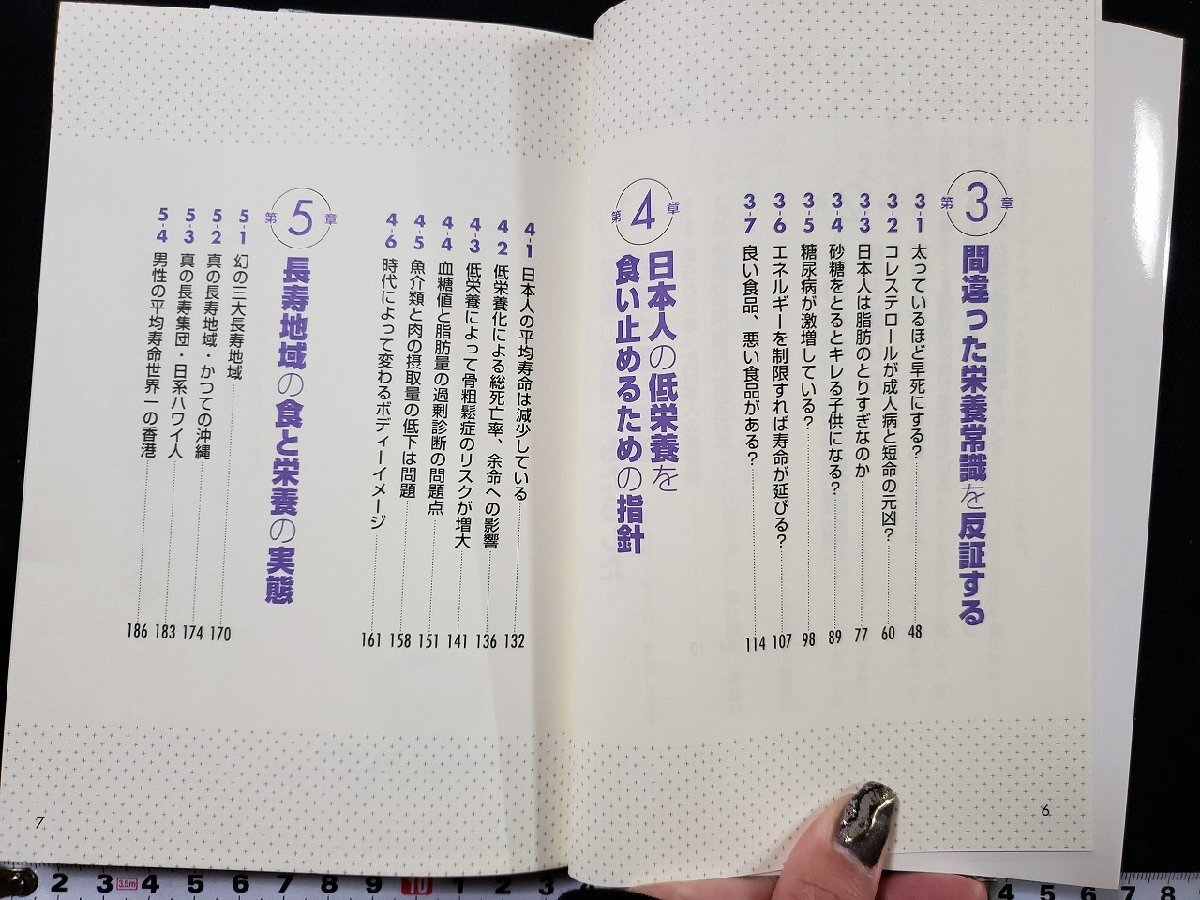 第3章
間違った栄養常識を反証する
3-1 太っているほど早死にする? 48
3-2 コレステロールが成人病と短命の元凶? 60
3-3 日本人は脂肪のとりすぎなのか 77
3-4 砂糖をとるとキレる子供になる? 89
3-5 糖尿病が激増している? 98
3-6 エネルギーを制限すれば寿命が延びる? 107
3-7 良い食品、悪い食品がある? 114
第4章
日本人の低栄養を
食い止めるための指針
6
4-1 日本人の平均寿命は減少している 132
4-2 低栄養化による総死亡率、余命への影響 136
4-3 低栄養によって骨粗鬆症のリスクが増大 141
4-4 血糖値と脂肪量の過剰診断の問題点 151
4-5 魚介類と肉の摂取量の低下は問題 158
4-6 時代によって変わるボディーイメージ 161
第5章
長寿地域の食と栄養の実態
5-1 幻の三大長寿地域 170
5-2 真の長寿地域・かつての沖縄 174
5-3 真の長寿集団・日系ハワイ人 183
5-4 男性の平均寿命世界一の香港 186
7
2 3 3.5m 4 5 6 7 8 9 10 1 2 3 4 5 6 7 8